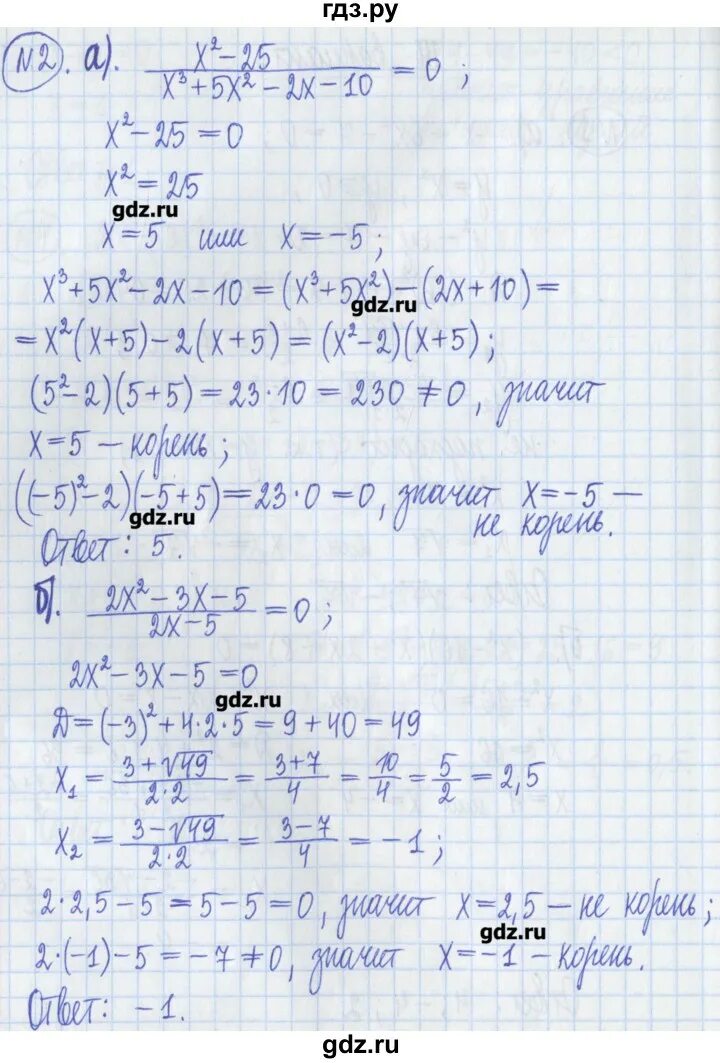 гдз.ру
№2. а). (x² – 25)/(x³ + 5x² – 2x – 10) = 0 ;
x² – 25 = 0
x² = 25
gdz.ru
x = 5 или x = –5 ;
x³ + 5x² – 2x – 10 = (x³ + 5x²) – (2x + 10) =
gdz.ru
= x²(x + 5) – 2(x + 5) = (x² – 2)(x + 5) ;
(5² – 2)(5 + 5) = 23 · 10 = 230 ≠ 0, значит
x = 5 – корень ;
((–5)² – 2)(–5 + 5) = 23 · 0 = 0, значит x = –5 –
gdz.ru
не корень.
Ответ: 5.
б). (2x² – 3x – 5)/(2x – 5) = 0 ;
2x² – 3x – 5 = 0
gdz.ru
Д = (–3)² + 4 · 2 · 5 = 9 + 40 = 49
x₁ = (3 + √49)/(2 · 2) = (3 + 7)/4 = 10/4 = 5/2 = 2,5
x₂ = (3 – √49)/(2 · 2) = (3 – 7)/4 = – 1 ;
2 · 2,5 – 5 = 5 – 5 = 0, значит x = 2,5 – не корень ;
gdz.ru
2 · (–1) – 5 = – 7 ≠ 0, значит x = –1 – корень.
Ответ: –1.
gdz.ru